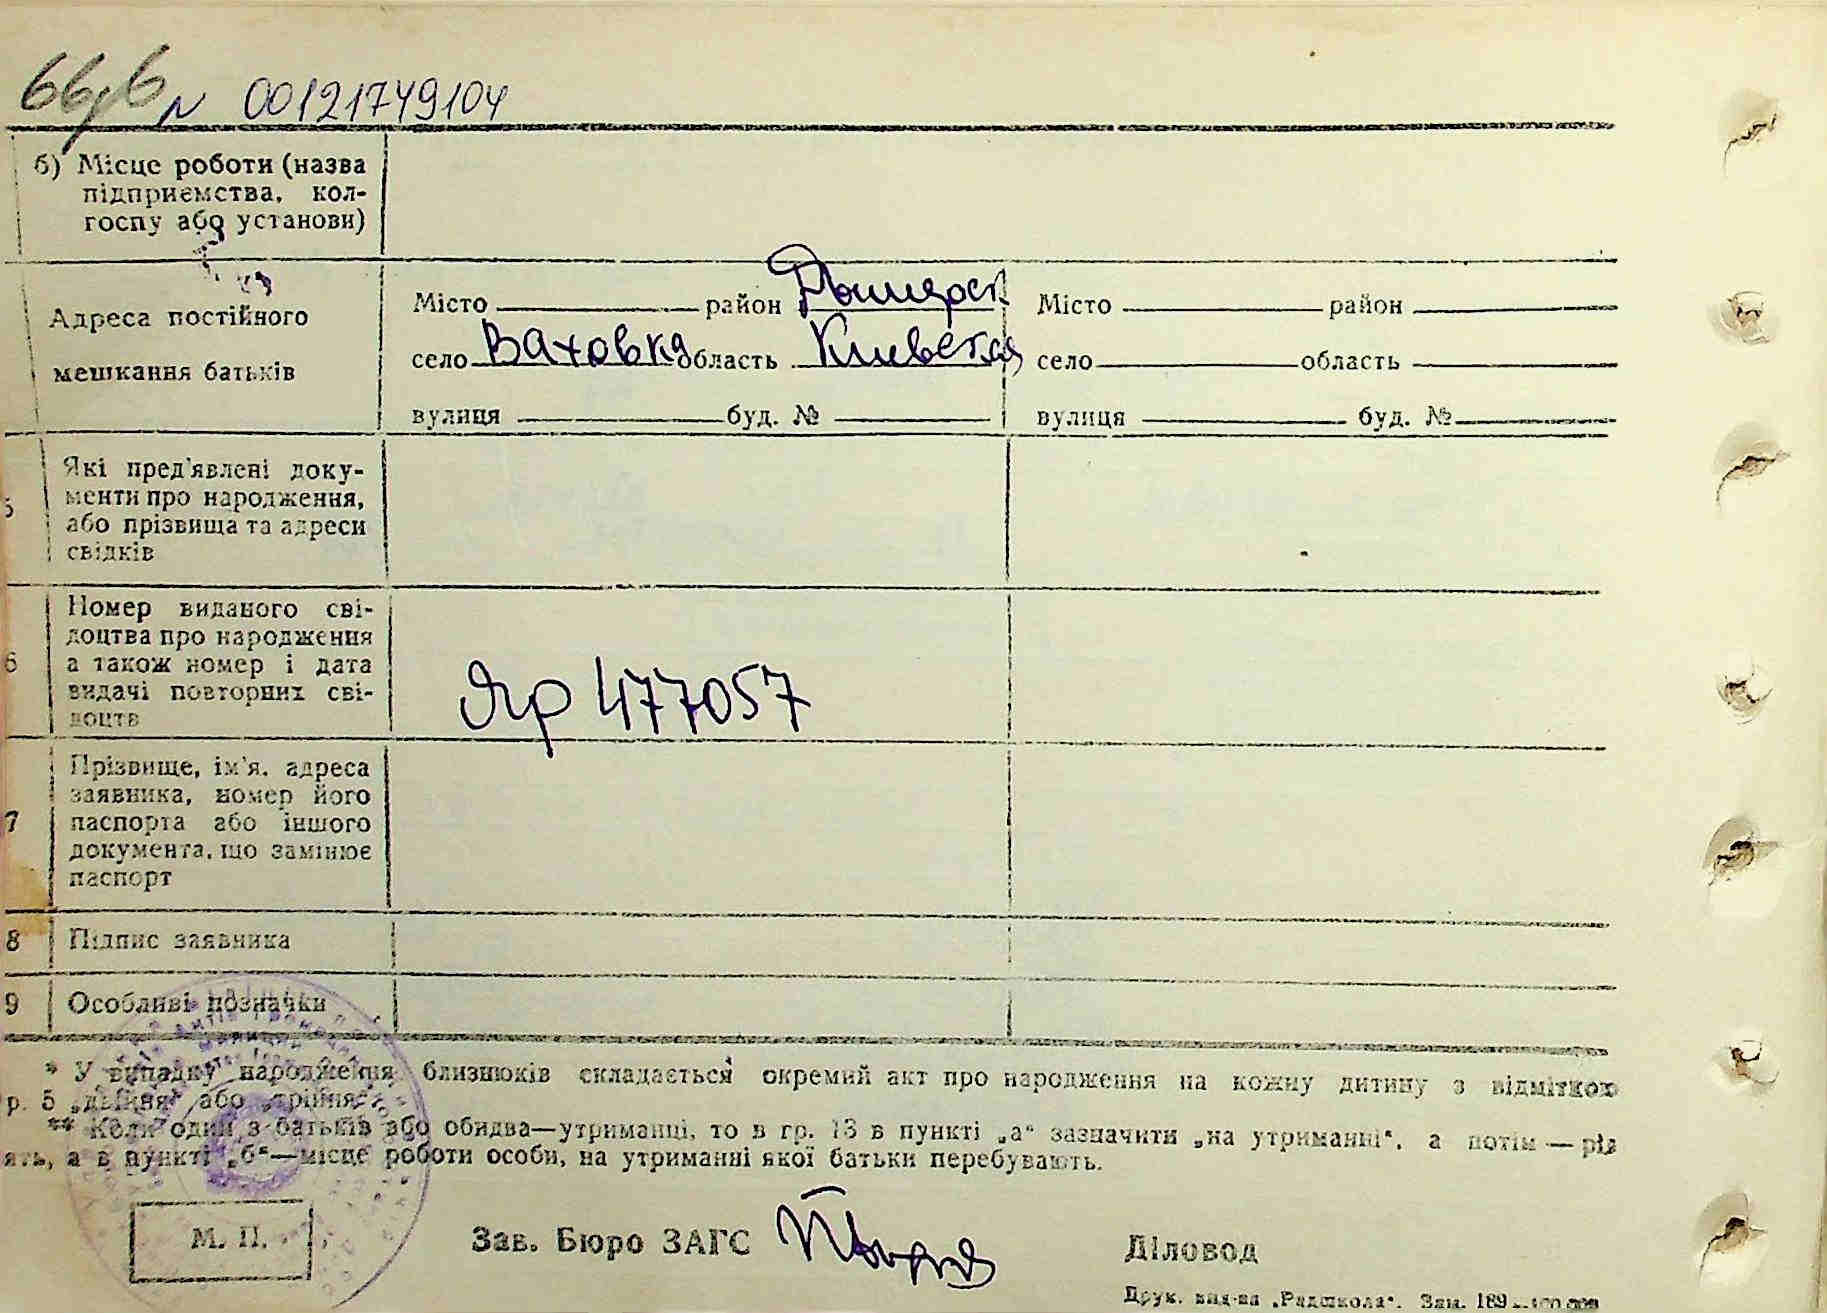 66/6 N 00121749104
б) Місце роботи (назва
підприємства, кол-
госпу або установи)
Адреса постійного
мешкання батьків
Місто район Дымерск Місто район
село Ваховка область Киевская село область
вулиця буд. № вулиця буд. №
Які пред'явлені доку-
менти про народження,
або прізвища та адреси
свідків
6 Номер виданого сві-
доцтва про народження
а також номер і дата
видачі повторних сві-
доцтв
Яр 477057
7 Прізвище, ім'я, адреса
заявника, номер його
паспорта або іншого
документа, що замінює
паспорт
8 Підпис заявника
9 Особливі позначки
* У випадку народження близнюків складається окремий акт про народження на кожну дитину з відміткою
р. 5 „двійня" або „трійня".
** Коли один з батьків або обидва—утриманці, то в гр. 13 в пункті „а" зазначити „на утриманні", а потім —
ять, а в пункті „б"—місце роботи особи, на утриманні якої батьки перебувають.
М. П. Зав. Бюро ЗАГС Діловод
Друк. вид-ва „Радшкола". Зам. 189